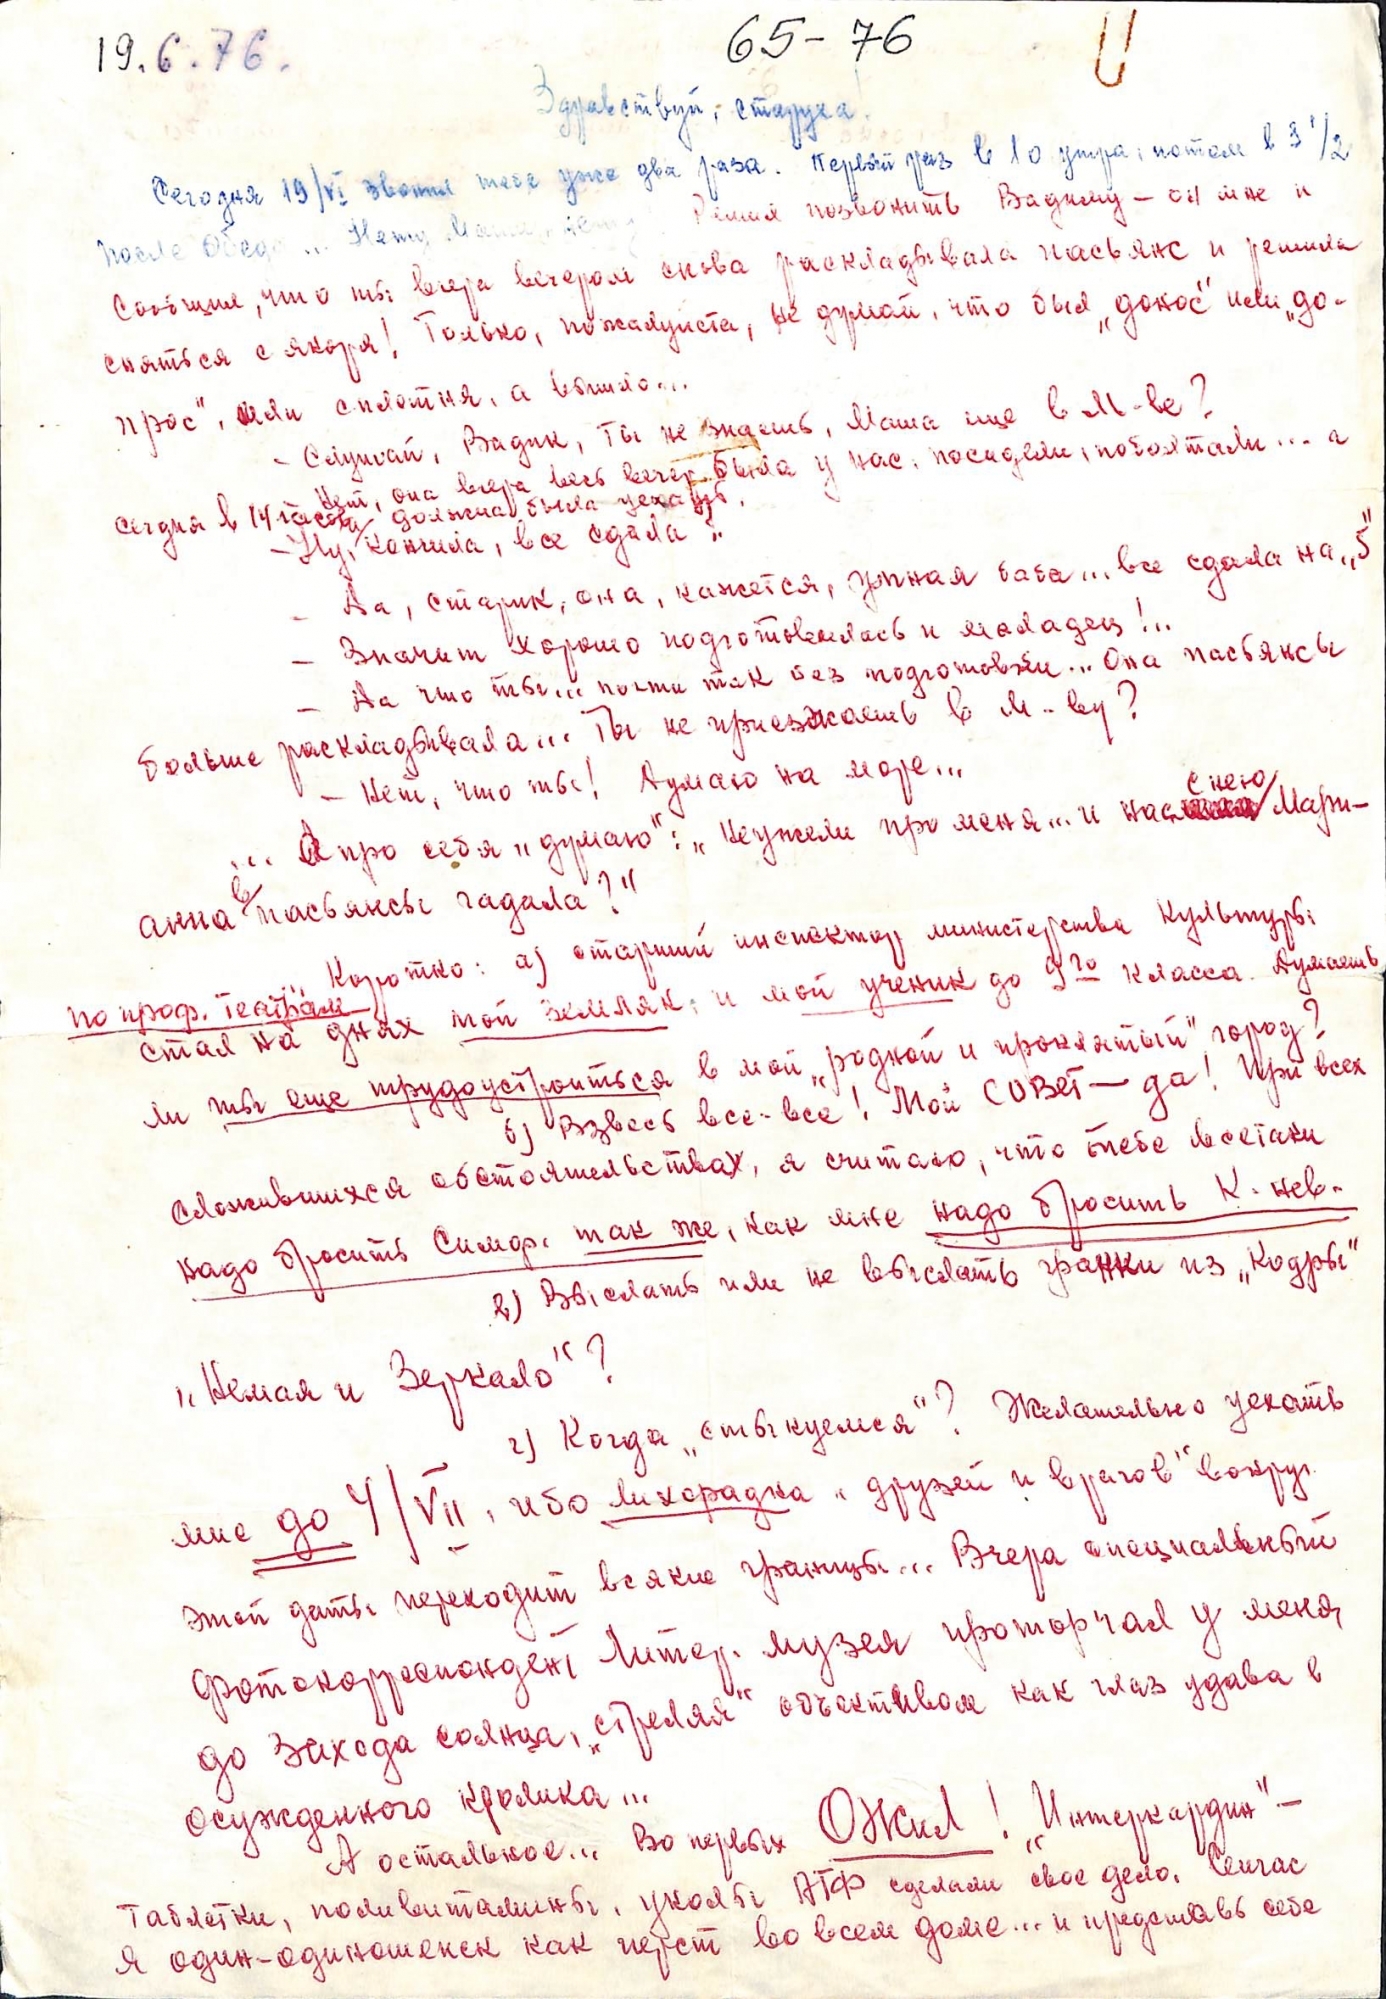 19.6.76.
65-76
Здравствуй, старуха!
Сегодня 19/VI звонил тебе уже два раза. Первый раз в 10 утра, потом в 3 1/2
после обеда... Нету Маши, нету! Решил позвонить Вадиму – он мне и
сообщил, что ты вчера вечером снова раскладывала пасьянс и решила
сняться с якоря! Только, пожалуйста, не думай, что был „донос" или „до-
прос", или сплетня, а вышло...
- Слушай, Вадик, ты не знаешь, Маша еще в М-ве?
- Нет, она вчера весь вечер была у нас, посидели, поболтали... а
сегодня в 14 часов должна была уехать.
- Ну, кончила, все сдала?
- Да, старик, она, кажется, умная баба... все сдала на „5"
- Значит хорошо подготовилась и молодец!..
- Да что ты... почти так без подготовки... Она пасьянсы
больше раскладывала... Ты не приезжаешь в М-ву?
- Нет, что ты! Думаю на море...
... А про себя „думаю": „Неужели про меня... и нас с нею Мари-
анна в пасьянсы гадала?"
Коротко: а) старший инспектор министерства Культуры
по проф. театрам
стал на днях мой земляк, и мой ученик до 9го класса. Думаешь
ли ты еще трудоустроиться в мой „родной и проклятый" город?
б) Взвесь все-все! Мой СОВЕТ – да! При всех
сложившихся обстоятельствах, я считаю, что тебе всетаки
надо бросить Симф. так же, как мне надо бросить К-нев.
в) Выслать или не высылать гранки из „Кодры"
„Немая и Зеркало"?
г) Когда „стыкуемся"? Желательно уехать
мне до 4/VII, ибо лихорадка „друзей и врагов" вокруг
этой даты переходит всякие границы... Вчера специальный
фотокорреспондент Литер. музея проторчал у меня,
до захода солнца, „стреляя" объективом как глаз удава в
осужденного кролика...
А остальное... Во первых ОЖИЛ! „Интеркордин" –
таблетки, поливитамины, уколы АТФ сделали свое дело. Сейчас
я один-одинешенек как перст во всем доме... и представь себе